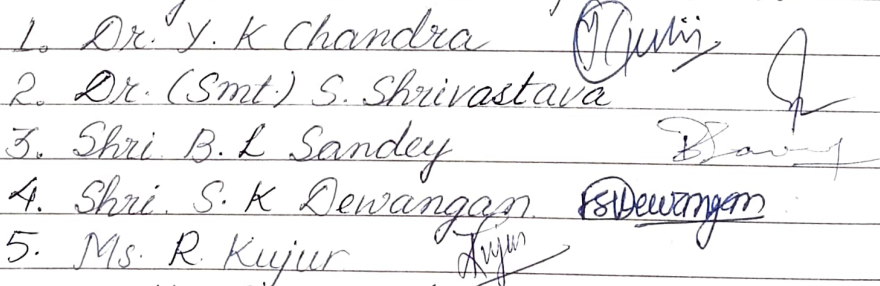 1. Dr. Y. K Chandra
2. Dr. (Smt.) S. Shrivastava
3. Shri B. L Sandey
4. Shri. S. K Dewangan SDewangan
5. Ms. R. Kujur Kujur